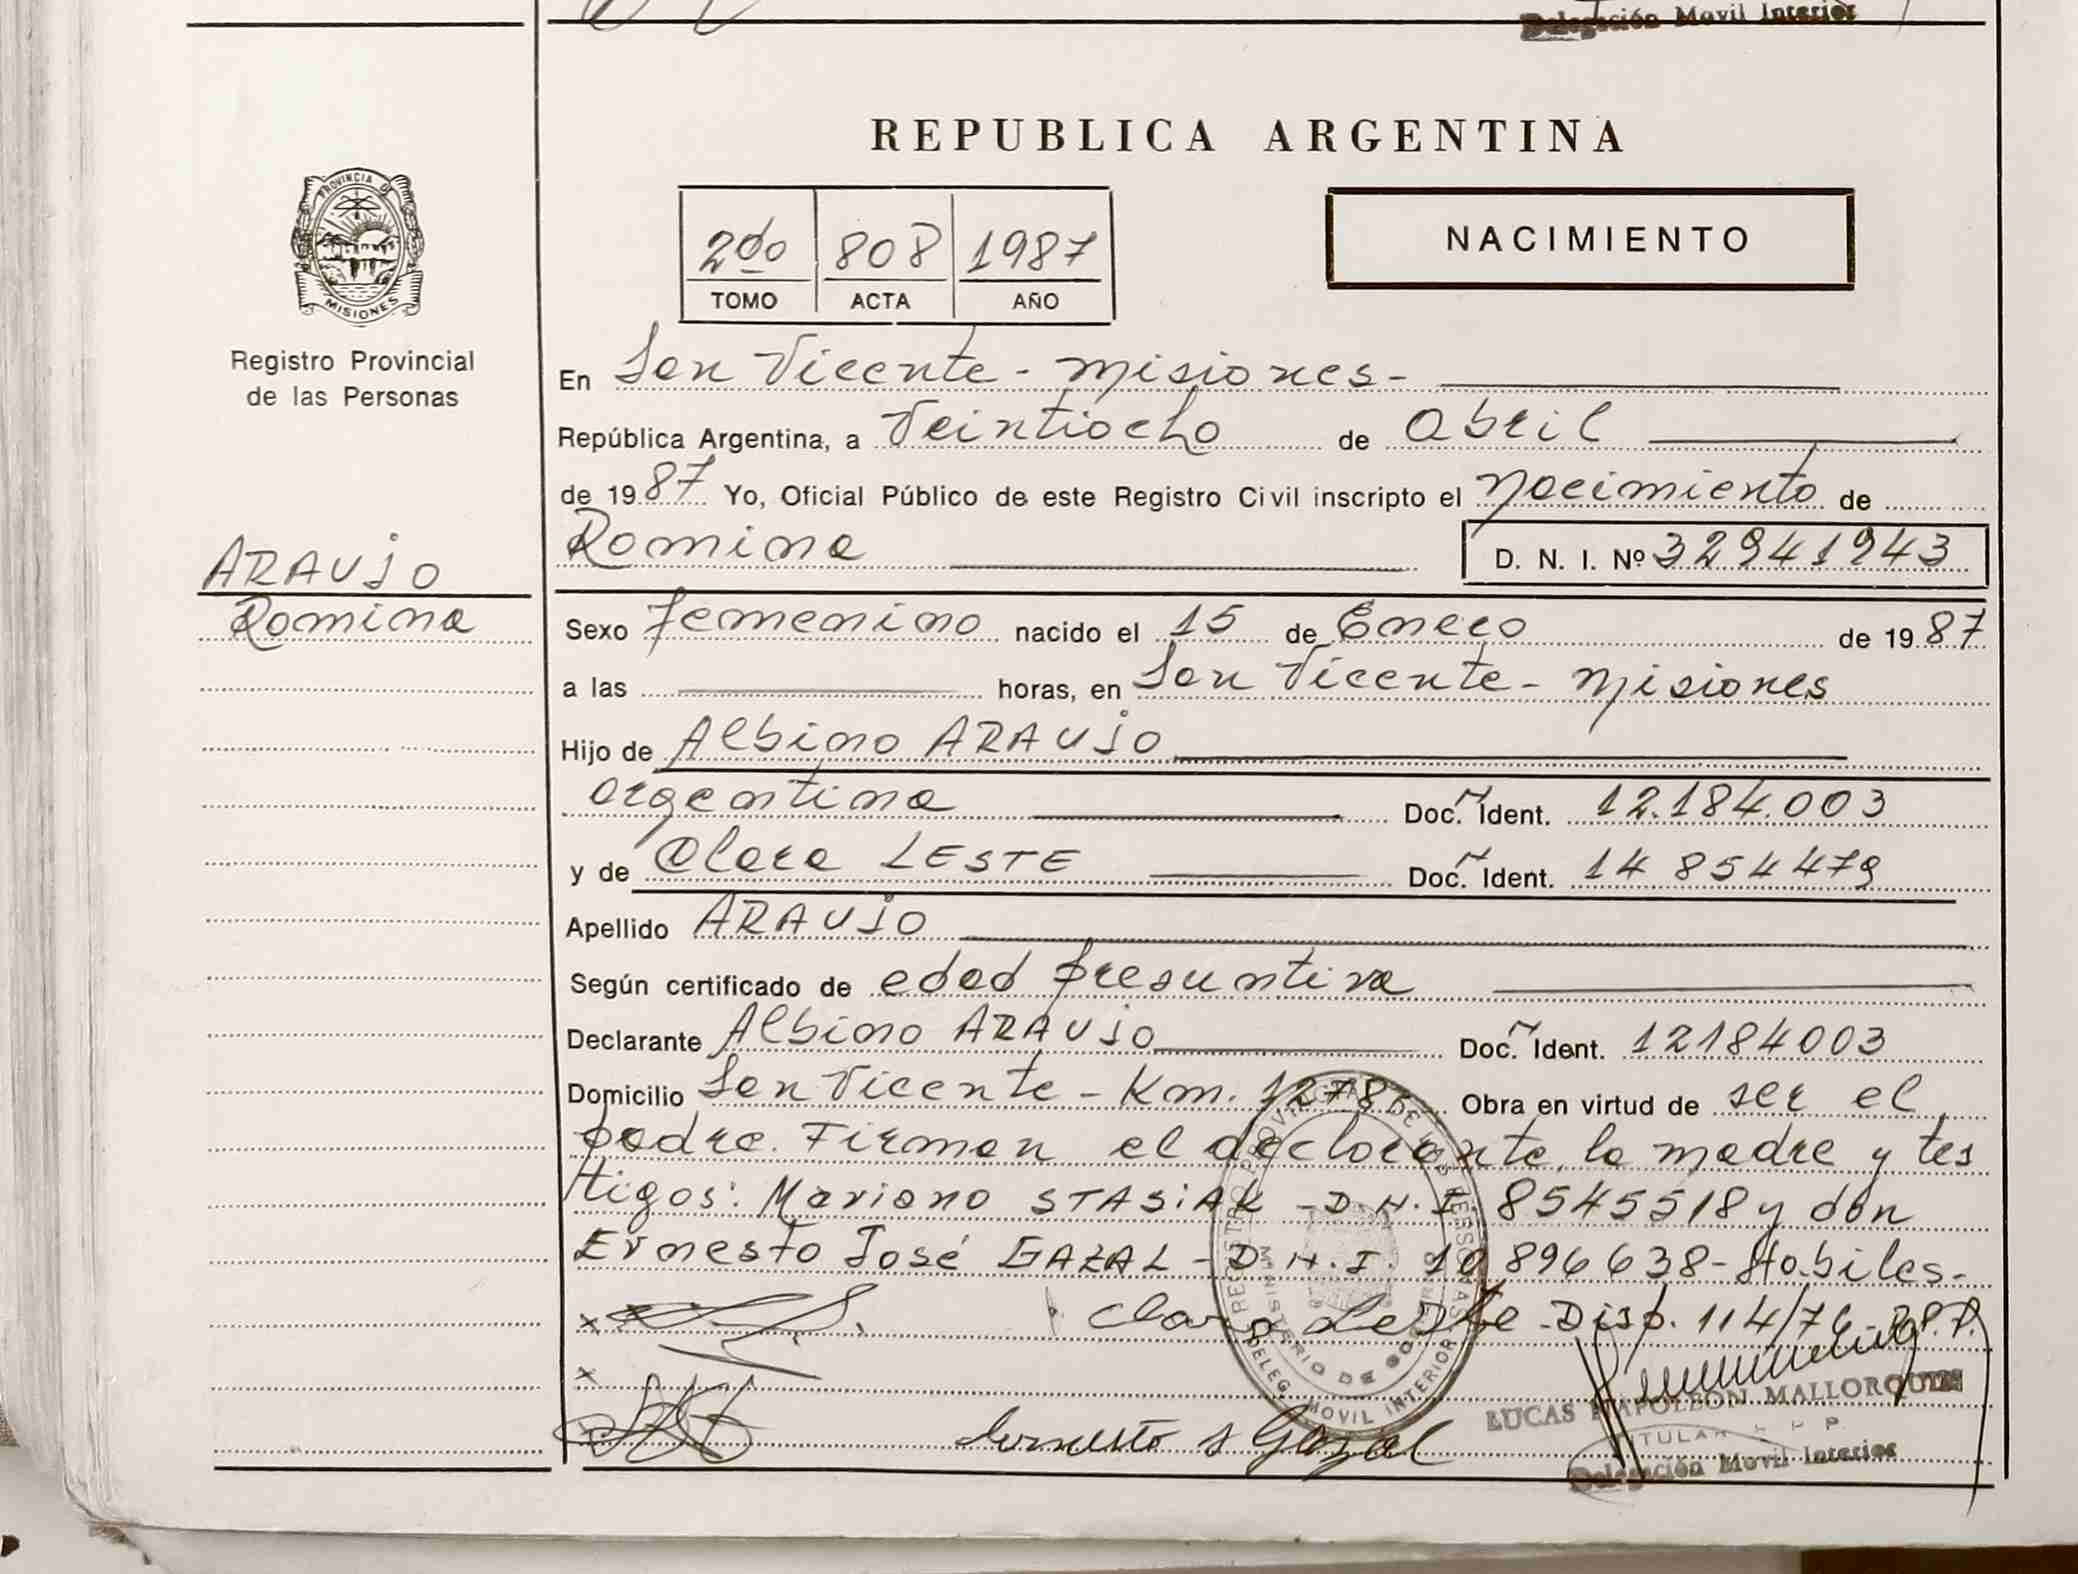 Delegación Movil Interior
REPUBLICA ARGENTINA
PROVINCIA DE
MISIONES
Registro Provincial
de las Personas
2do 808 1987
TOMO ACTA AÑO
NACIMIENTO
En San Vicente - Misiones -
República Argentina, a Veintiocho de Abril
de 1987 Yo, Oficial Público de este Registro Civil inscripto el Nacimiento de
Romina D. N. I. Nº 32941943
ARAUJO
Romina
Sexo femenino nacido el 15 de Enero de 1987
a las horas, en San Vicente - Misiones
Hijo de Albino ARAUJO
argentina Doc. Ident. 12.184.003
y de Clara LESTE Doc. Ident. 14 854479
Apellido ARAUJO
Según certificado de edad presuntiva
Declarante Albino ARAUJO Doc. Ident. 12184003
Domicilio San Vicente - Km. 1278 Obra en virtud de ser el
padre. Firman el declarante, la madre y tes
tigos: Mariano STASIAK - D.N.I. 8545518 y don
Ernesto José GAZAL - D.N.I. 10896638 - Habiles.-
Clara Leste Disp. 114/76 R.P.P.
Ernesto J Gazal
LUCAS NAPOLEON MALLORQUIN
TITULAR
Delegación Movil Interior
REGISTRO PROVINCIAL DE LAS PERSONAS
MINISTERIO DE GOBIERNO
DELEG. MOVIL INTERIOR